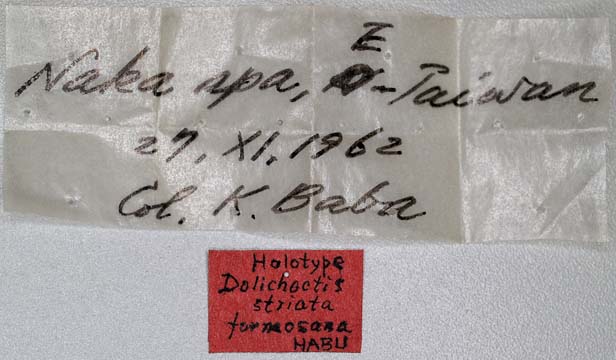 Naka spa, E-Taiwan
27, XI, 1962
Col. K. Baba
Holotype
Dolichoctis
striata
formosana
HABU